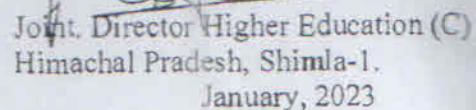 Joint. Director Higher Education (C)
Himachal Pradesh, Shimla-1.
January, 2023